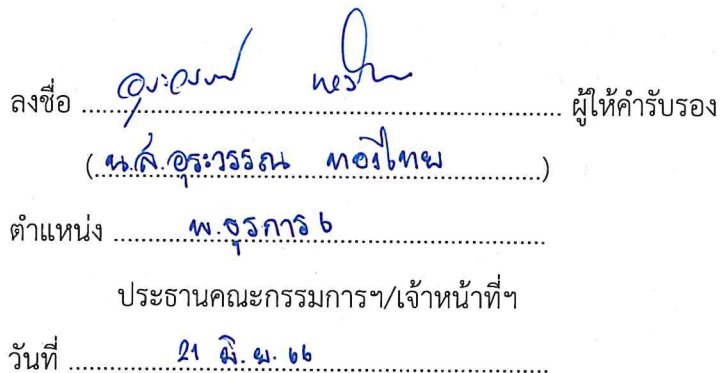 ลงชื่อ ........ อุระวรรณ ........ ผู้ให้คำรับรอง
(น.ส.อุระวรรณ ทองไทย)
ตำแหน่ง ........ พ.ธุรการ ๖ ........
ประธานคณะกรรมการฯ/เจ้าหน้าที่ฯ
วันที่ ........ 21 มิ.ย. ๖๖ ........